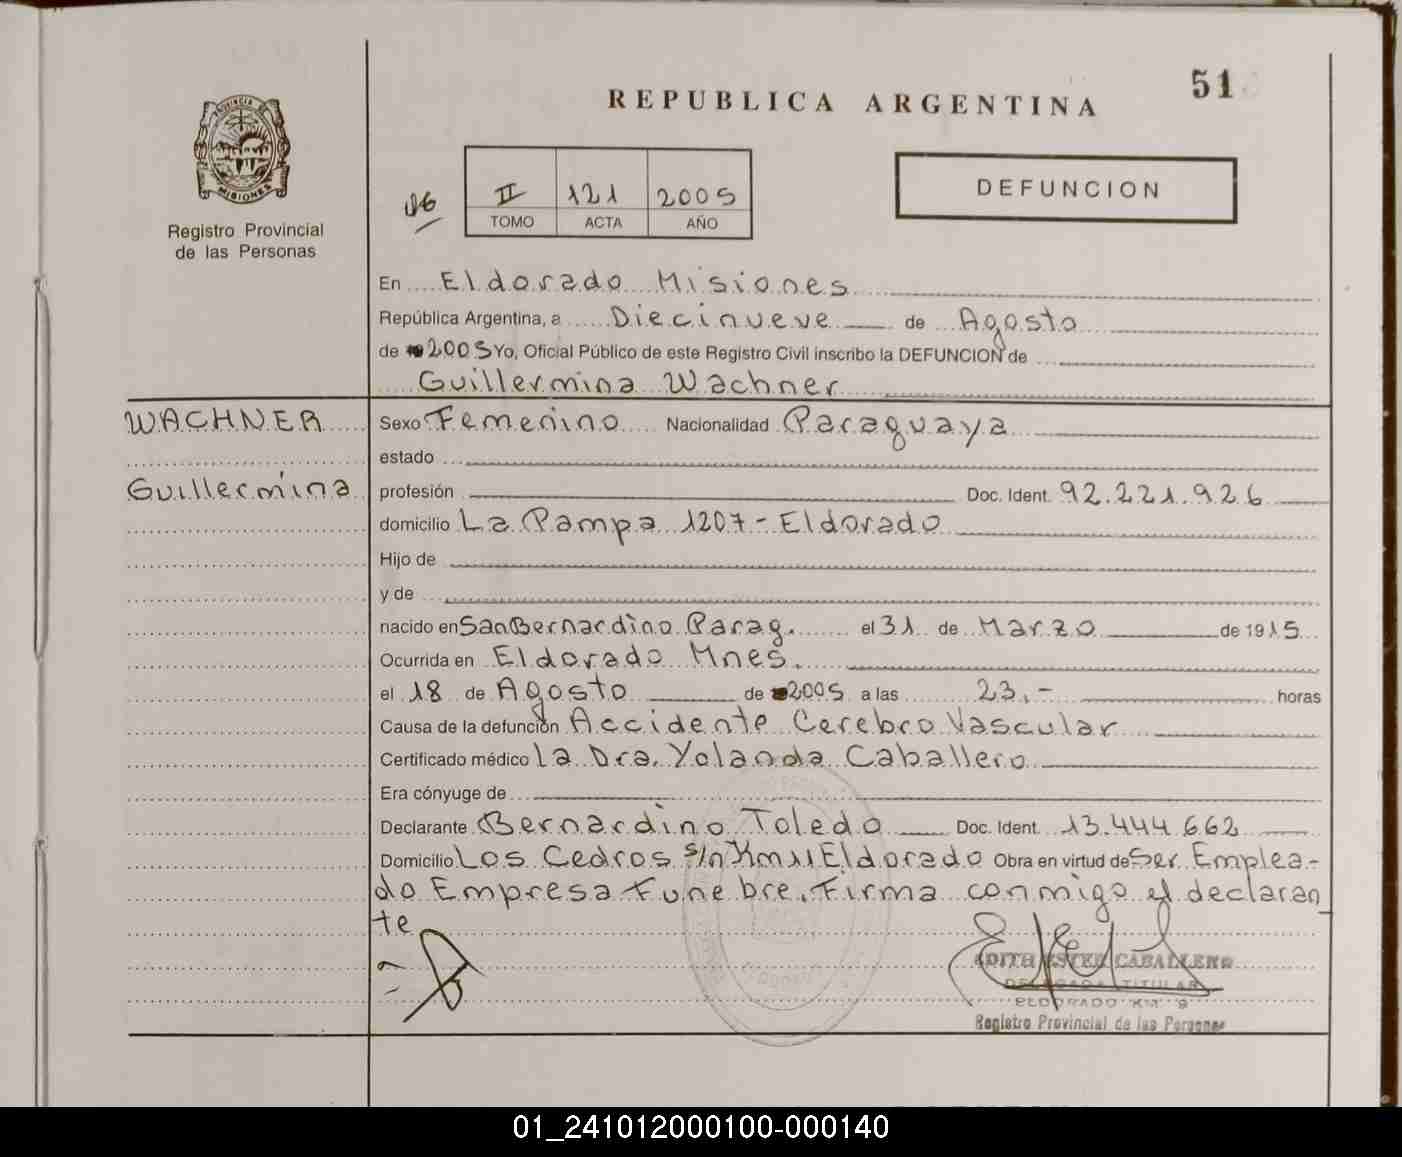 51
REPUBLICA ARGENTINA
PROVINCIA DE
MISIONES
Registro Provincial
de las Personas
II 121 2005
TOMO ACTA AÑO
DEFUNCION
En Eldorado Misiones
República Argentina, a Diecinueve de Agosto
de 2005 Yo, Oficial Público de este Registro Civil inscribo la DEFUNCION de
Guillermina Wachner
WACHNER
Guillermina
Sexo Femenino Nacionalidad Paraguaya
estado
profesión Doc. Ident. 92.221.926
domicilio La Pampa 1207 - Eldorado
Hijo de
y de
nacido en San Bernardino Parag. el 31 de Marzo de 1915
Ocurrida en Eldorado Mnes.
el 18 de Agosto de 2005 a las 23.- horas
Causa de la defunción Accidente Cerebro Vascular
Certificado médico la Dra. Yolanda Caballero
Era cónyuge de
Declarante Bernardino Toledo Doc. Ident. 13.444.662
Domicilio Los Cedros s/n Km 11 Eldorado Obra en virtud de Ser Emplea-
do Empresa Funebre. Firma conmigo el declaran
te
EDITH ESTER CABALLERO
DELEGADA TITULAR
ELDORADO KM. 9
Registro Provincial de las Personas
01_241012000100-000140